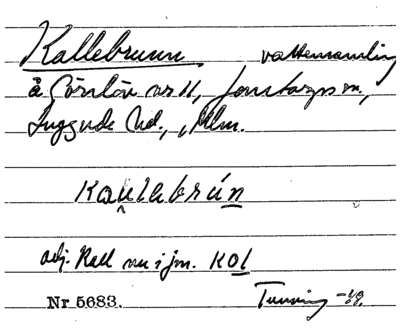 Kallebrunn vattensamling
å Görslöv nr 11, Jonstorps sn,
Luggude hd., Mlm.
kaulebrún
adj. Kall nu i jm. kol
Nr 5683. Tuneving -49.